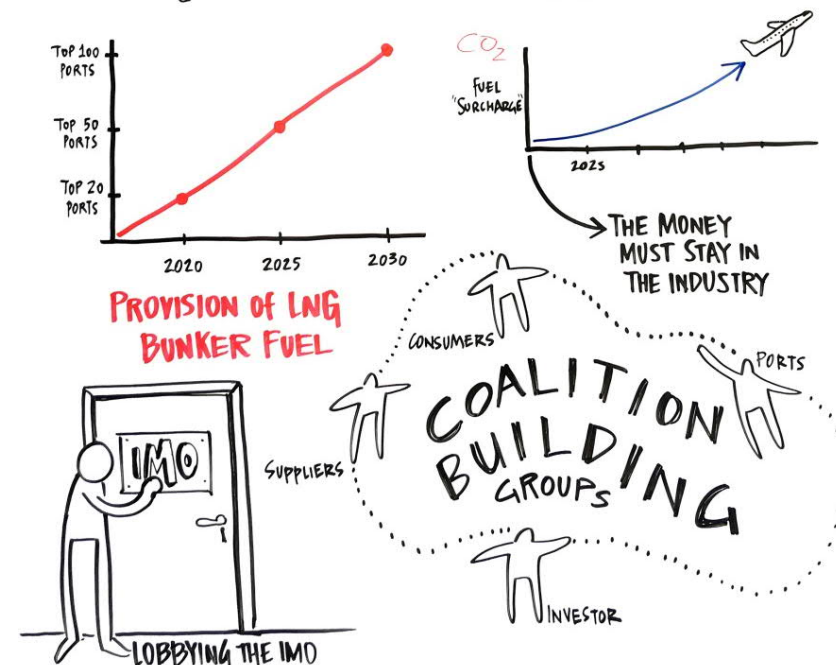 TOP 100
PORTS
TOP 50
PORTS
TOP 20
PORTS
2020
2025
2030
PROVISION OF LNG
BUNKER FUEL
CO2
FUEL
"SURCHARGE"
2025
THE MONEY
MUST STAY IN
THE INDUSTRY
CONSUMERS
PORTS
SUPPLIERS
COALITION
BUILDING
GROUPS
INVESTOR
IMO
LOBBYING THE IMO